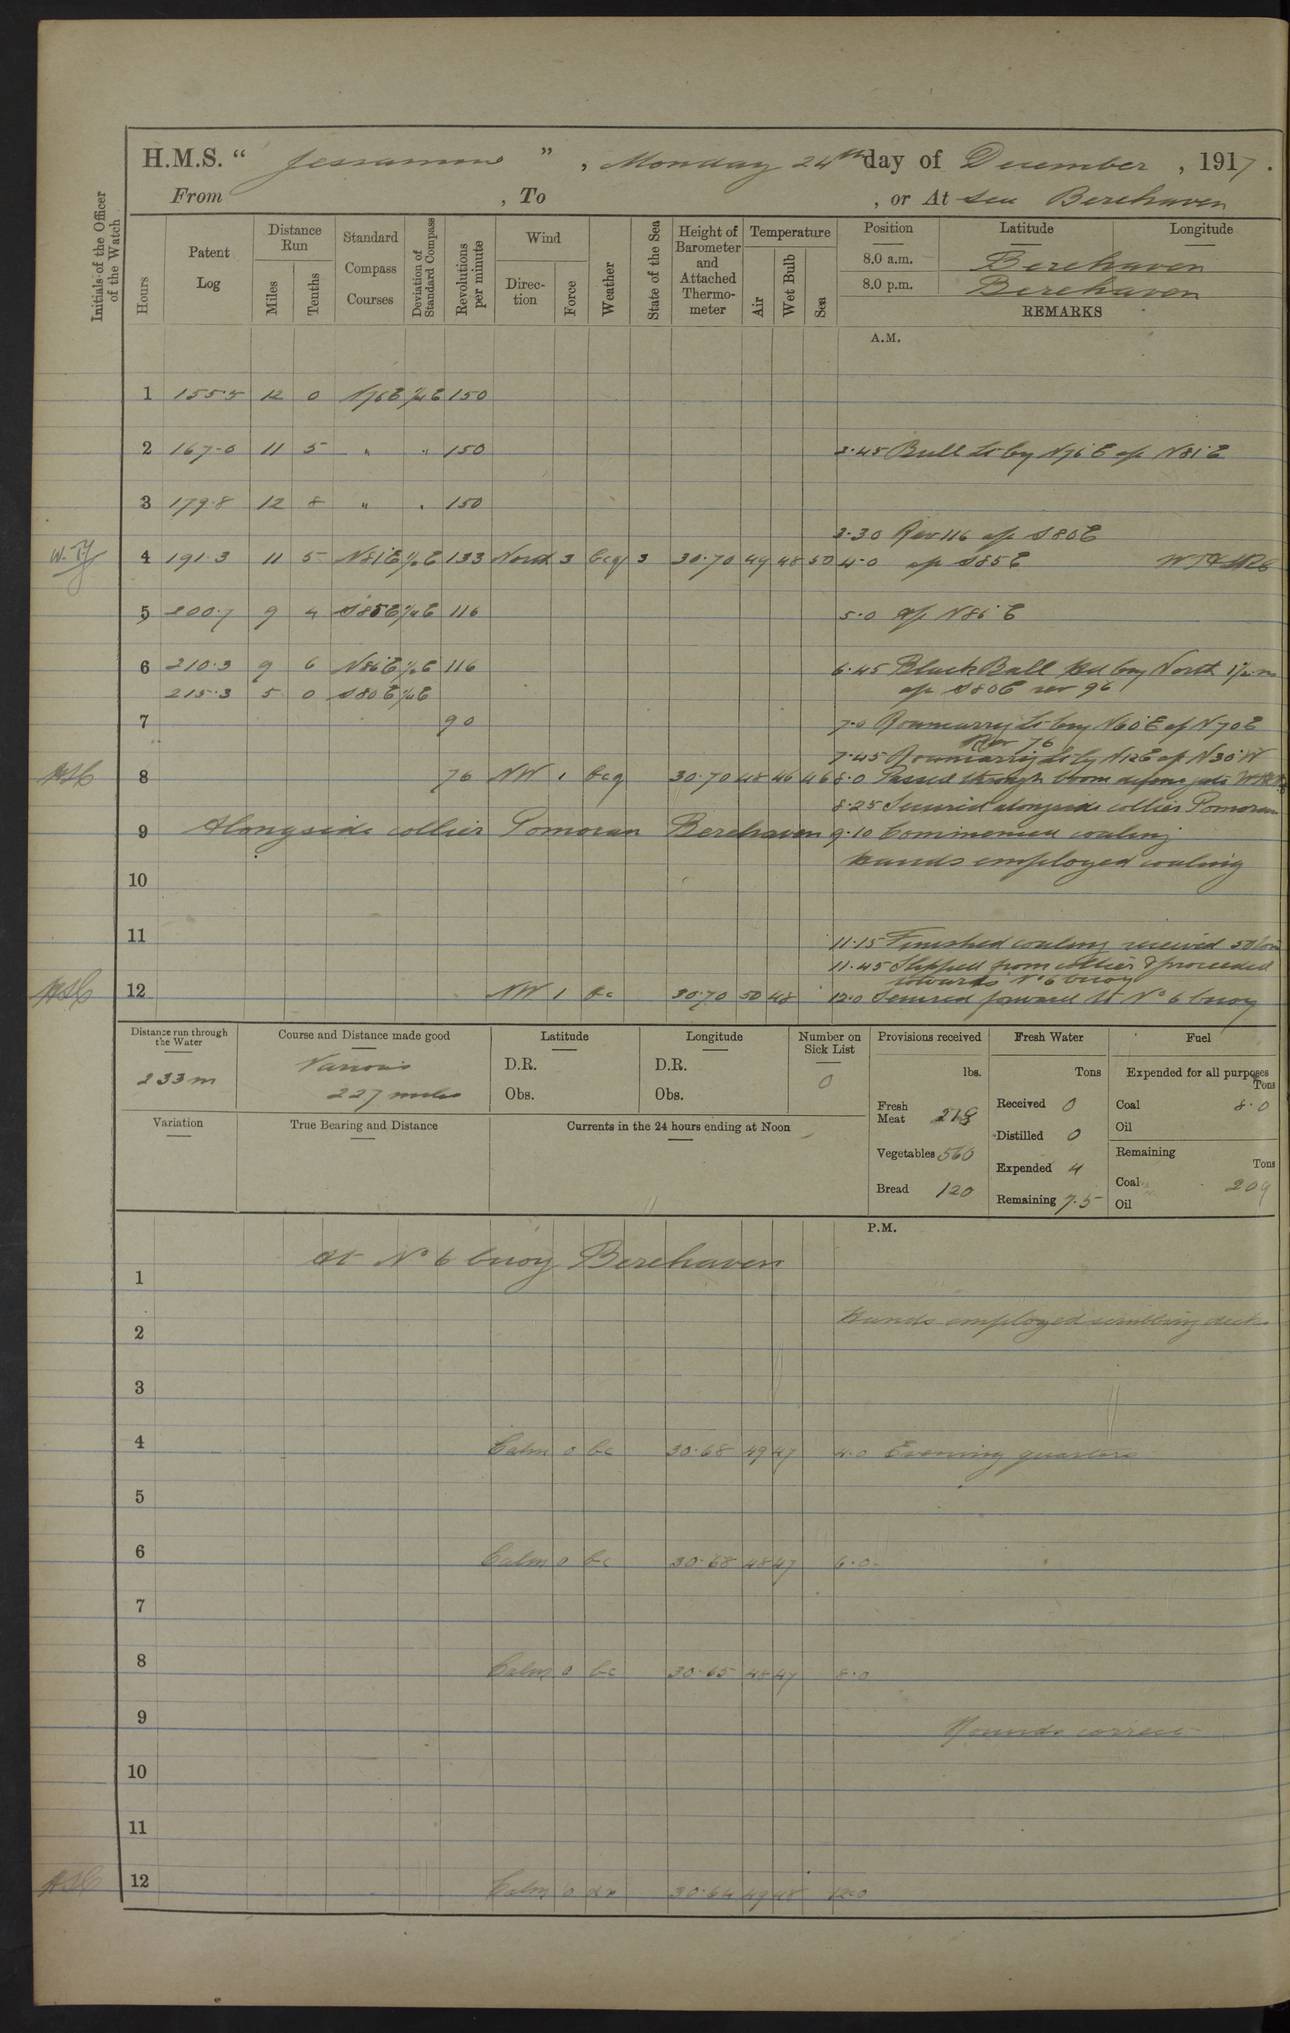 H.M.S. " Jessamine " , Monday 24th day of December , 1917 .
From , To , or At sea Berehaven
Initials of the Officer of the Watch
Hours
Patent Log
Distance Run
Miles
Tenths
Standard Compass Courses
Deviation of Standard Compass
Revolutions per minute
Wind
Direction
Force
Weather
State of the Sea
Height of Barometer and Attached Thermometer
Temperature
Air
Wet Bulb
Sea
Position Latitude Longitude
8.0 a.m. Berehaven
8.0 p.m. Berehaven
REMARKS
A.M.
1 155.5 12 0 N76E 150
2 167.0 11 5 " " 150 2.45 Bull Lt brg N76E a/c N81E
3 179.8 12 8 " " 150
3.30 Rev 116 a/c S80E
4 191.3 11 5 N81E 133 North 3 bcq 3 30.70 49 48 50 4.0 a/c S85E
5 200.7 9 4 S85E 116 5.0 a/c N86E
6 210.3 9 6 N86E 116 6.45 Black Ball Hd brg North
215.3 5 0 S80E a/c S80E rev 96
7 90 7.0 Roancarrig Lt brg N60E a/c N70E
Rev 76
7.45 Roancarrig Lt brg N12E a/c N30W
8 76 NW 1 bcq 30.70 48 46 46 8.0 Passed through boom defence gate
8.25 Secured alongside collier Pomoran
9 Alongside collier Pomoran Berehaven 9.10 Commenced coaling
Hands employed coaling
10
11 11.15 Finished coaling received 50 tons
11.45 Slipped from collier & proceeded
towards No 6 buoy
12 NW 1 bc 30.70 50 48 12.0 Secured forward to No 6 buoy
Distance run through the Water
233 m
Course and Distance made good
Various
227 miles
Latitude
D.R.
Obs.
Longitude
D.R.
Obs.
Number on Sick List
0
Provisions received
lbs.
Fresh Meat 218
Vegetables 560
Bread 120
Fresh Water
Tons
Received 0
Distilled 0
Expended 4
Remaining 7.5
Fuel
Expended for all purposes
Tons
Coal 8.0
Oil
Remaining
Tons
Coal 209
Oil
Variation
True Bearing and Distance
Currents in the 24 hours ending at Noon
P.M.
At No 6 buoy Berehaven
1
2 Hands employed scrubbing decks
3
4 Calm 0 bc 30.68 49 47 4.0 Evening quarters
5
6 Calm 0 bc 30.68 48 47 6.0
7
8 Calm 0 bc 30.65 48 47 8.0
9 Rounds correct
10
11
12 Calm 0 30.64 49 48 12.0